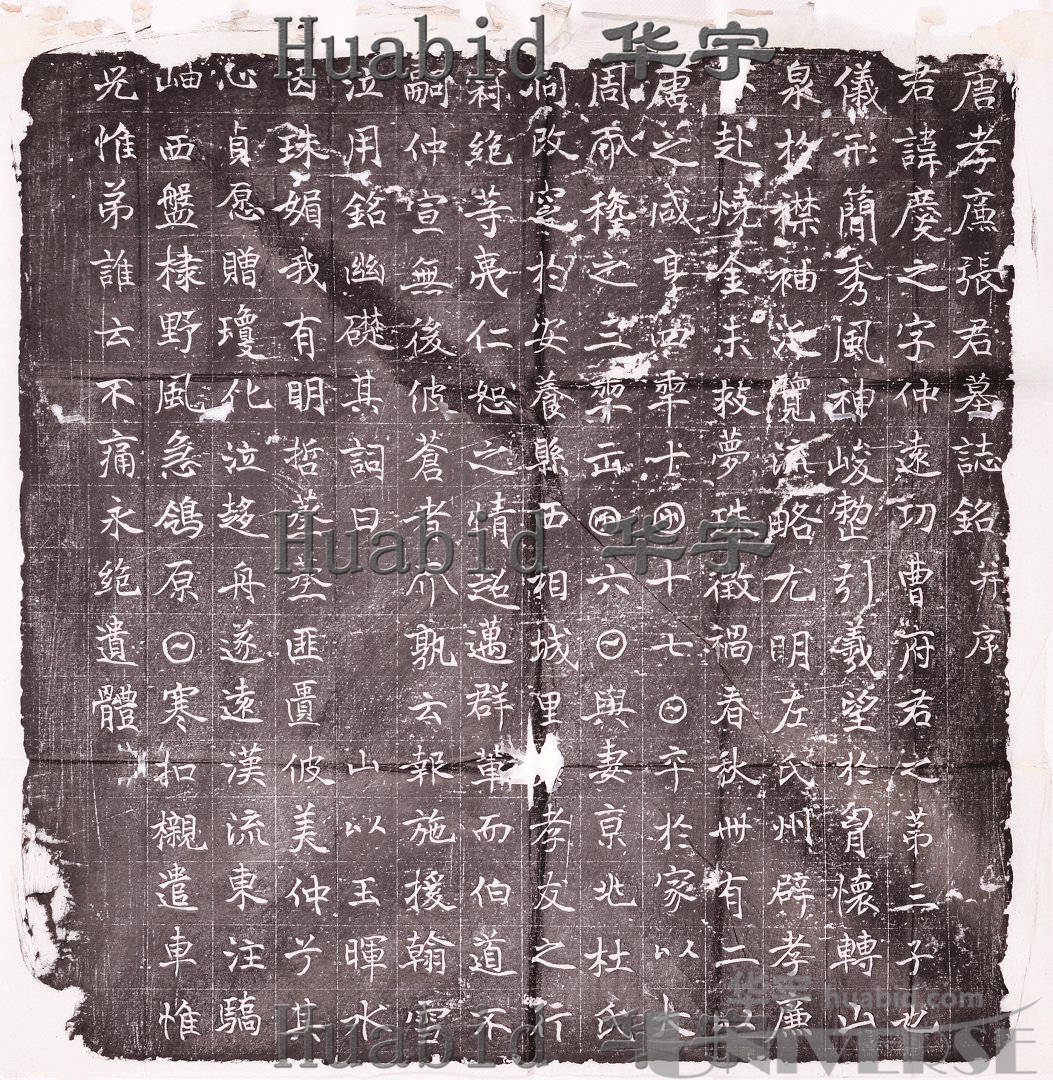 唐孝廉張君墓誌銘并序
君諱慶之字仲遠功曹府君之第三子也
儀形簡秀風神峻整引羲望於胷懷轉山
泉於襟袖泛覽流略尤明左氏州辟孝廉
赴燒金未救夢珠徵禍春秋卌有二以
唐之咸亨四𠡦十𠥱十七𡆠卒於家以大
周𠀑𥠢之三𠡦𠙺𠥱六𡆠與妻京兆杜氏
同改窆於安養縣西相城里孝友之行
窮絶等夷仁恕之情超邁群輩而伯道不
嗣仲宣無後彼蒼者介孰云報施援翰雪
泣用銘幽礎其詞曰 山以玉暉水
因珠媚我有明哲蒸蒸匪匱彼美仲兮其
心貞愿贈瓊化泣趍舟遂遠漢流東注驕
岫西盤棣野風急鴒原𡆠寒扣櫬遣車惟
兄惟弟誰云不痛永絶遺體
Huabid 华宇
Huabid 华宇
Huabid 华宇
华宇 huabid.com
UNIVERSE